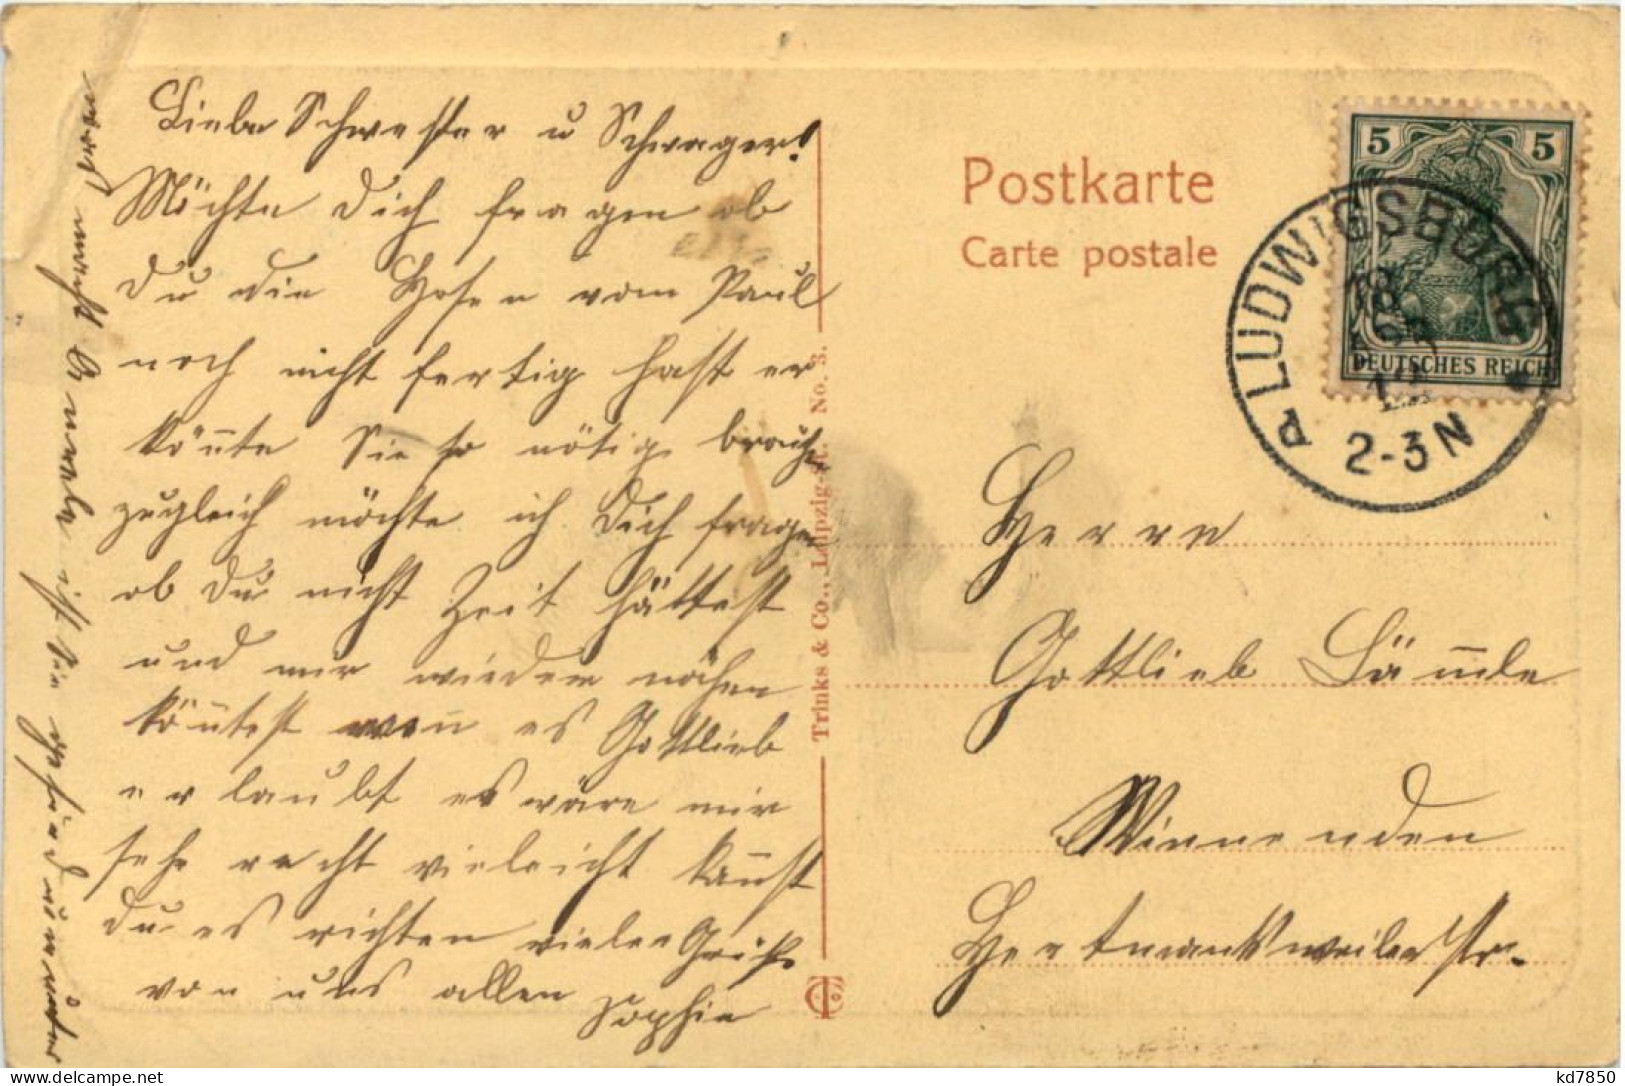 Liebe Schwester u Schwager!
Möchte Dich fragen ob
Du die Hosen vom Paul
noch nicht fertig hast er
kön̄te Sie so nötig brauch
zugleich möchte ich Dich fragen
ob Du nicht Zeit hättest
und mir wieder nähen
kön̄test wen̄ es Gottlieb
erlaubt es wäre mir
sehr recht vieleicht kan̄st
Du es richten viele Grüße
von uns allen Sophie
was macht
ist sie gesund u munter
Postkarte
Carte postale
Trinks & Co., Leipzig-R. No. 3.
5 5
DEUTSCHES REICH
LUDWIGSBURG
2-3N
Herrn
Gottlieb Läm̄le
Winnenden
Hertmannsweilerstr.
kd7850